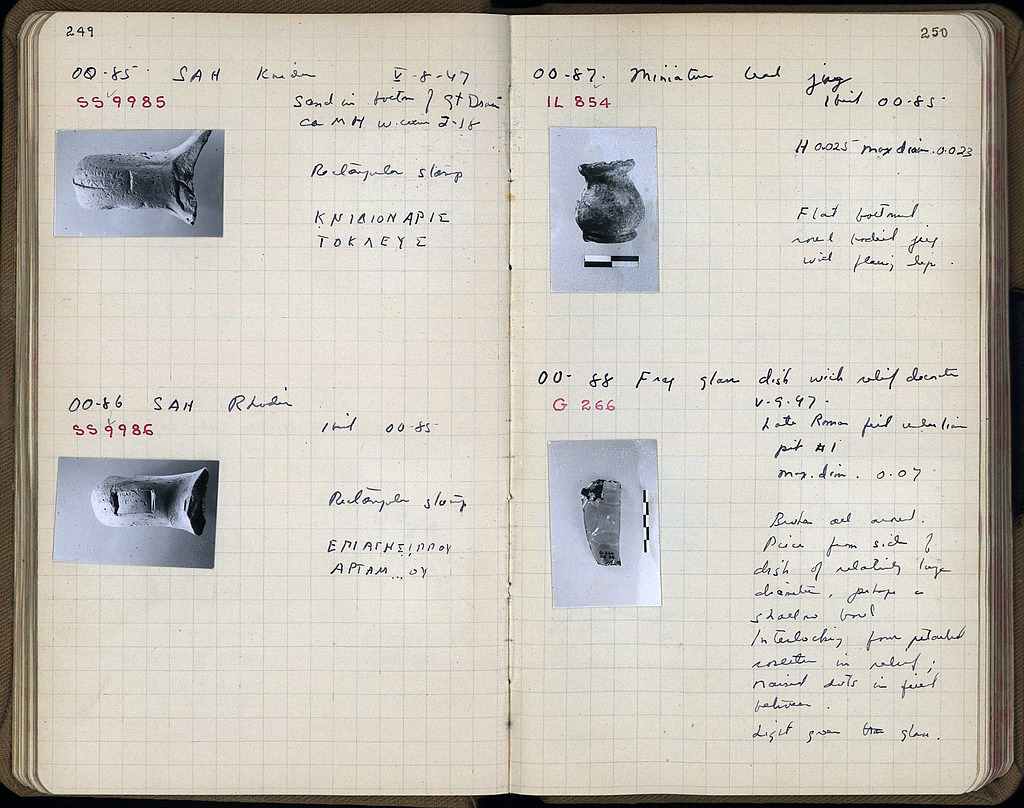 249
OO-85 SAH Knidian V-8-47
SS 9985
Sand in bottom of Gt Drain
ca MH w. coin 2-18
Rectangular stamp
ΚΝΙΔΙΟΝ ΑΡΙΣ
ΤΟΚΛΕΥΣ
OO-86 SAH Rhodian
SS 9986
Ibid OO-85
Rectangular stamp
ΕΠΙΑΓΗΣΙΠΠΟΥ
ΑΡΤΑΜ...ΟΥ
250
OO-87. Miniature lead jug
IL 854
Ibid OO-85
H 0.025 max diam. 0.023
Flat bottomed
round bodied jug
with flaring lip.
OO-88 Frag glass dish with relief decoration
G 266
V-9-47.
Late Roman fill
pit #1
max. dim. 0.07
Broken all around.
Piece from side of
dish of relatively large
diameter, perhaps a
shallow bowl
Interlocking four petalled
rosettes in relief;
raised dots in field
between.
Light green glass.